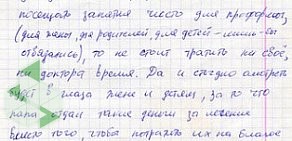 посещать занятия чисто для проформы,
(для жены, для родителей, для детей – лишь бы
отвязались), то не стоит тратить ни своё,
ни доктора время. Да и стыдно смотреть
будет в глаза жене и детям, за то что
папа отдал такие деньги за лечение
вместо того, чтобы потратить их на благое